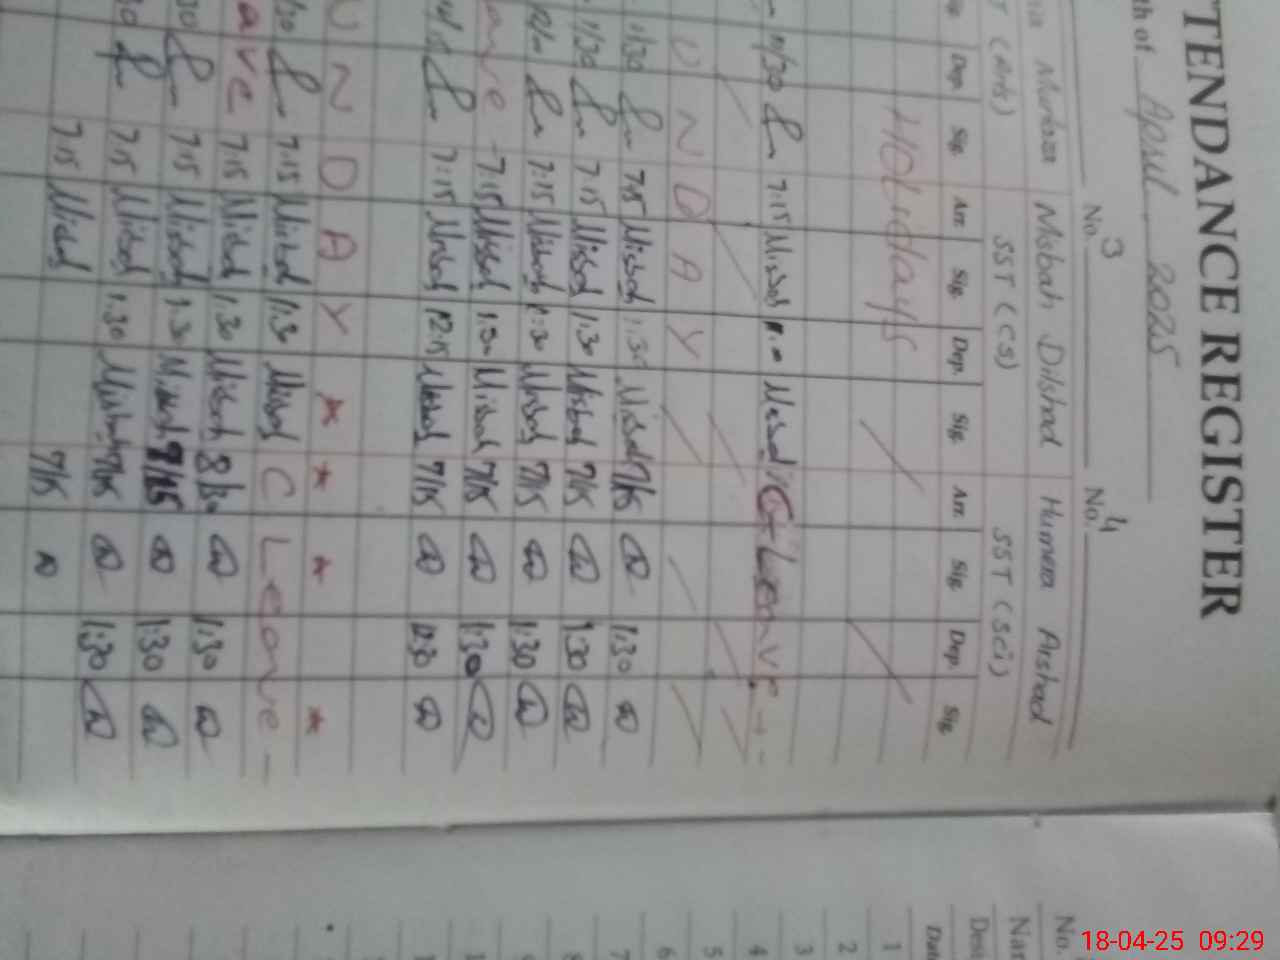 TENDANCE REGISTER
th of April 2025
No. 3 No. 4
Murtaza Misbah Dilshad Humera Arshad
T (Arts) SST (CS) SST (Sci)
Dep. Sig. Arr. Sig. Dep. Sig. Arr. Sig. Dep. Sig
HOLidays
1/30 7:15 Misbah Misbah C-Leave --
U N D A Y
1/30 7:15 Misbah 1:30 Misbah 7/15 1:30
1/30 7:15 Misbah 1:30 Misbah 7/15 1:30
7:15 Misbah 1:30 Misbah 7/15 1:30
ave 7:15 Misbah 1:30 Misbah 7/15 1:30
7:15 Misbah 12:15 Misbah 7/15 12:30
U N D A Y * * * *
/30 7:15 Misbah 1:30 Misbah C Leave -
ave 7:15 Misbah 1:30 Misbah 8/30 1:30
30 7:15 Misbah 1:30 Misbah 7/15 1:30
30 7:15 Misbah 1:30 Misbah 7/15 1:30
7:15 Misbah 7/15
No.
Nar
Desi
Date
1
2
3
4
5
6
7
8
18-04-25 09:29